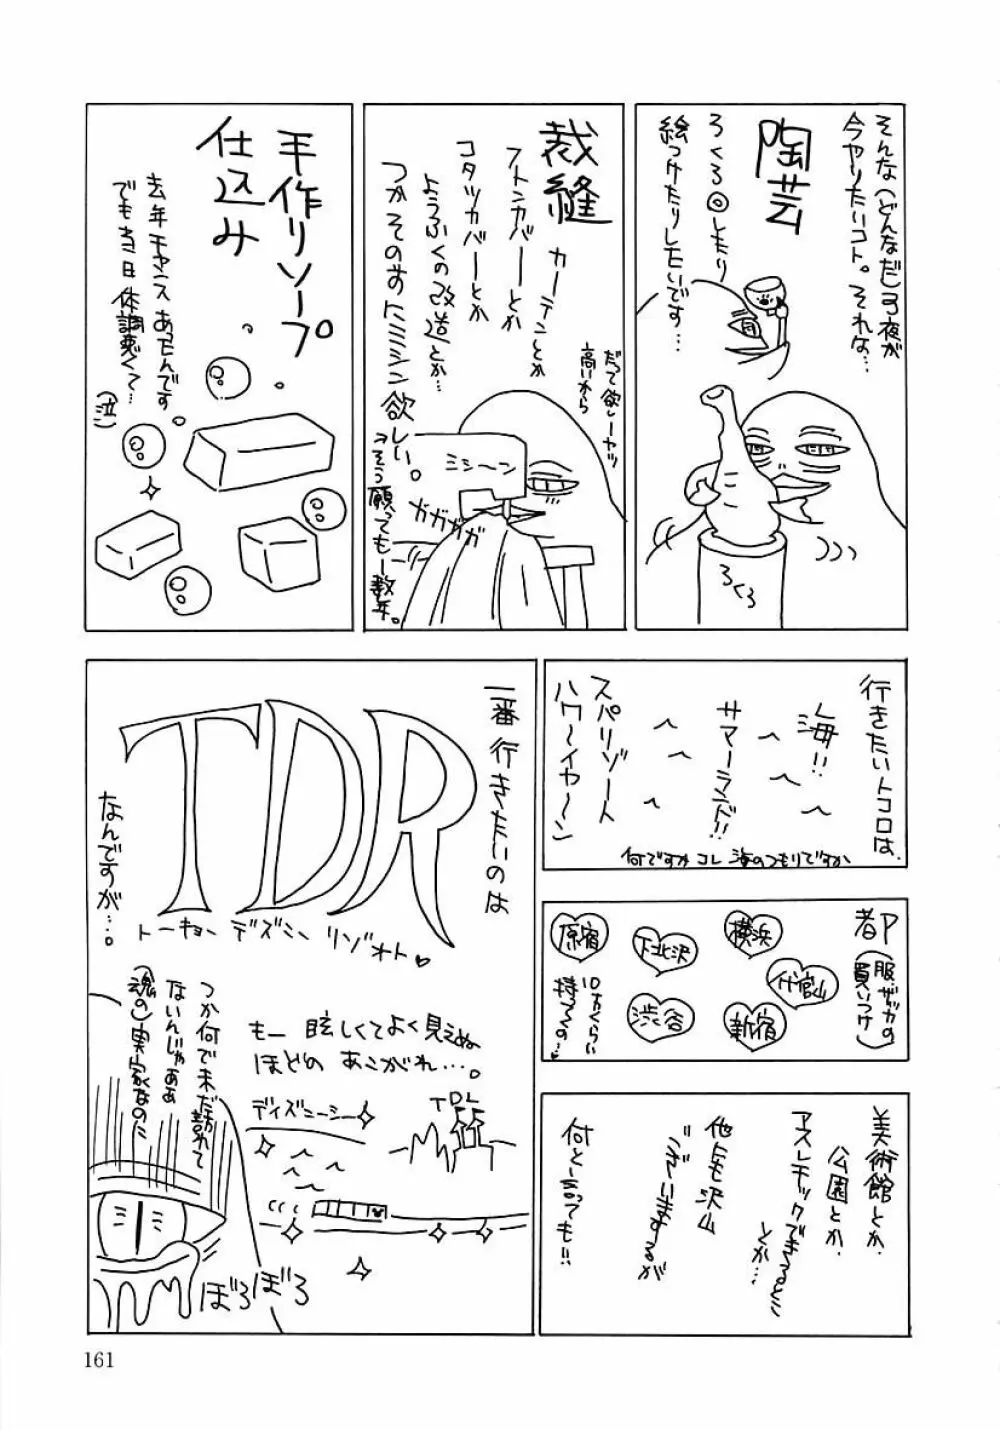 そんな(どんなだ)弓夜が
今ヤりたいコト。それな…
陶芸
ろくろ◎したり
絵つけたりしたいです…
ろくろ
裁縫
カーテンとか
フトンカバーとか
コタツカバーとか
ようふくの改造とか…
つかそのまえにミシン欲しい。
→そう願ってもー数年。
だって欲しーヤツ
高いから
ミシ〜ン
ガガガガ
手作りソープ
仕込み
去年チャンスあったんです
でも当日体調悪くて…
(泣)
行きたいトコロは、
海!!
サマーランド!!
スパリゾート
ハワ〜イヤ〜ン
何ですかコレ 海のつもりですか
都P
(服・ザッカの
買いつけ)
横浜
代官山
新宿
下北沢
渋谷
原宿
10万くらい
持ってくの…♥
美術館とか、
公園とか、
アスレチックできるとこ
とか…
他にも沢山
ございますが
何と言っても!!
一番行きたいのは
TDR
トーキョー ディズニー リゾォト♥
なんですが…。
もー 眩しくてよく見えぬ
ほどの あこがれ…。
ディズニーシー
TDL
つか何で未だ訪れて
ないんじゃああ
(魂の)実家なのに
ぼろぼろ
161